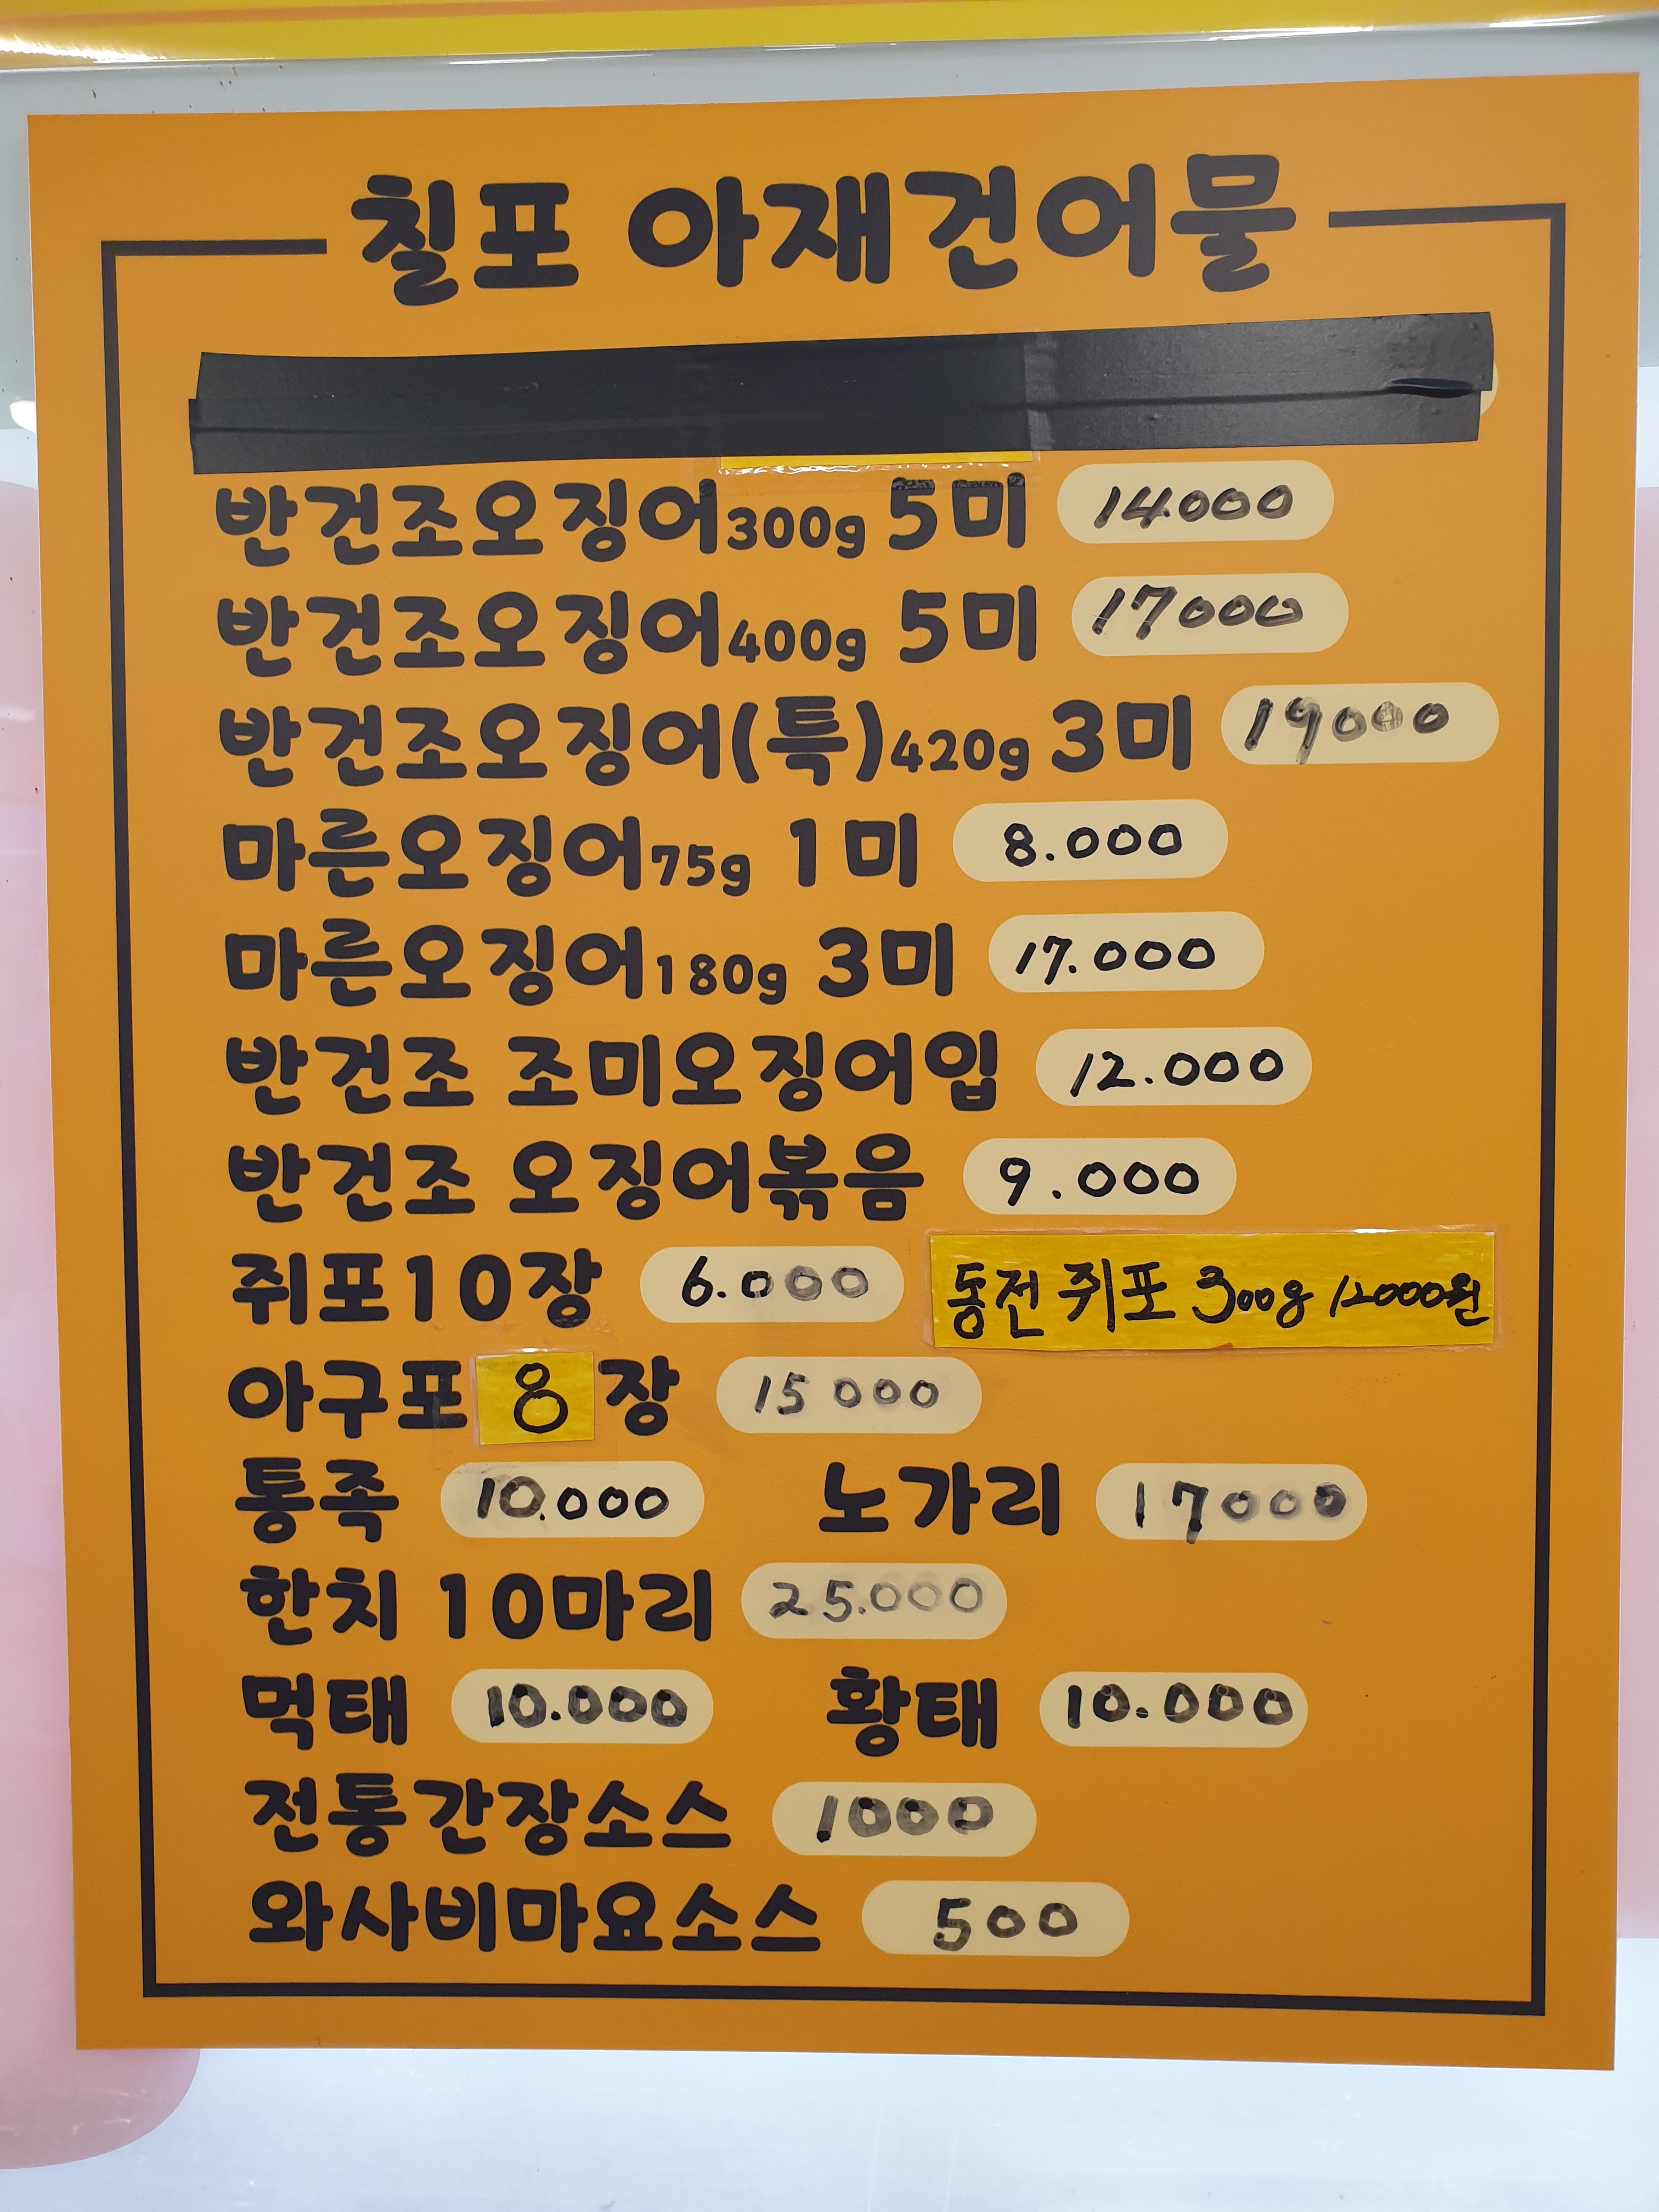 칠포 아재건어물
반건조오징어300g 5미 14.000
반건조오징어400g 5미 17000
반건조오징어(특)420g 3미 19000
마른오징어75g 1미 8.000
마른오징어180g 3미 17.000
반건조 조미오징어입 12.000
반건조 오징어볶음 9.000
쥐포10장 6.000 동전쥐포 300g 12000원
아구포 8장 15000
통족 10.000 노가리 17000
한치 10마리 25.000
먹태 10.000 황태 10.000
전통간장소스 1000
와사비마요소스 500